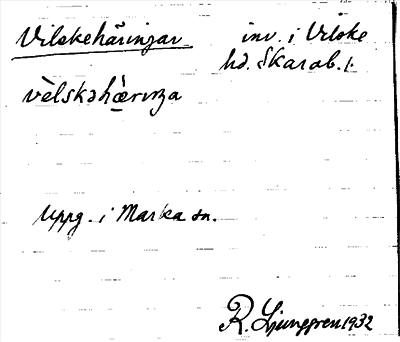 Vilskehäringar inv. i Vilske
hd. Skarab. l.
vèlskəhæ̀rıŋa
Uppg. i Marka sn.
R. Ljunggren 1932